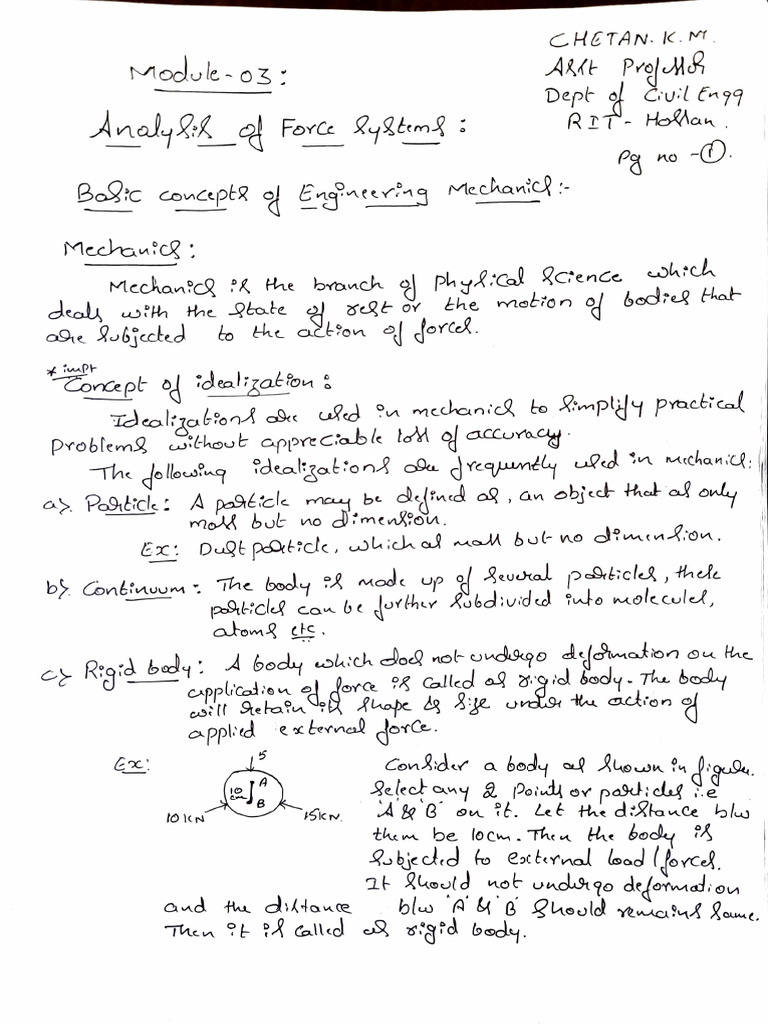 CHETAN.K.M.
Module-03:
Asst Professor
Dept of Civil Engg
Analysis of Force Systems:
RIT-Hassan.
Pg no -①.
Basic concepts of Engineering Mechanics:-
Mechanics:
Mechanics is the branch of physical science which
deals with the state of rest or the motion of bodies that
are subjected to the action of forces.
* impt
Concept of idealization:
Idealizations are used in mechanics to simplify practical
problems without appreciable loss of accuracy.
The following idealizations are frequently used in mechanics:
a). Particle: A particle may be defined as, an object that as only
mass but no dimension.
Ex: Dust particle, which as mass but no dimension.
b). Continuum: The body is made up of several particles, these
particles can be further subdivided into molecules,
atoms etc.
c). Rigid body: A body which does not undergo deformation on the
application of force is called as rigid body. The body
will retain its shape & size under the action of
applied external force.
Ex:
5
10 cm
A
B
10KN
15KN.
Consider a body as shown in figure.
Select any 2 points or particles i.e
'A' & 'B' on it. Let the distance b/w
them be 10cm. Then the body is
subjected to external load/forces.
It should not undergo deformation
and the distance b/w 'A' & 'B' should remains same.
Then it is called as rigid body.